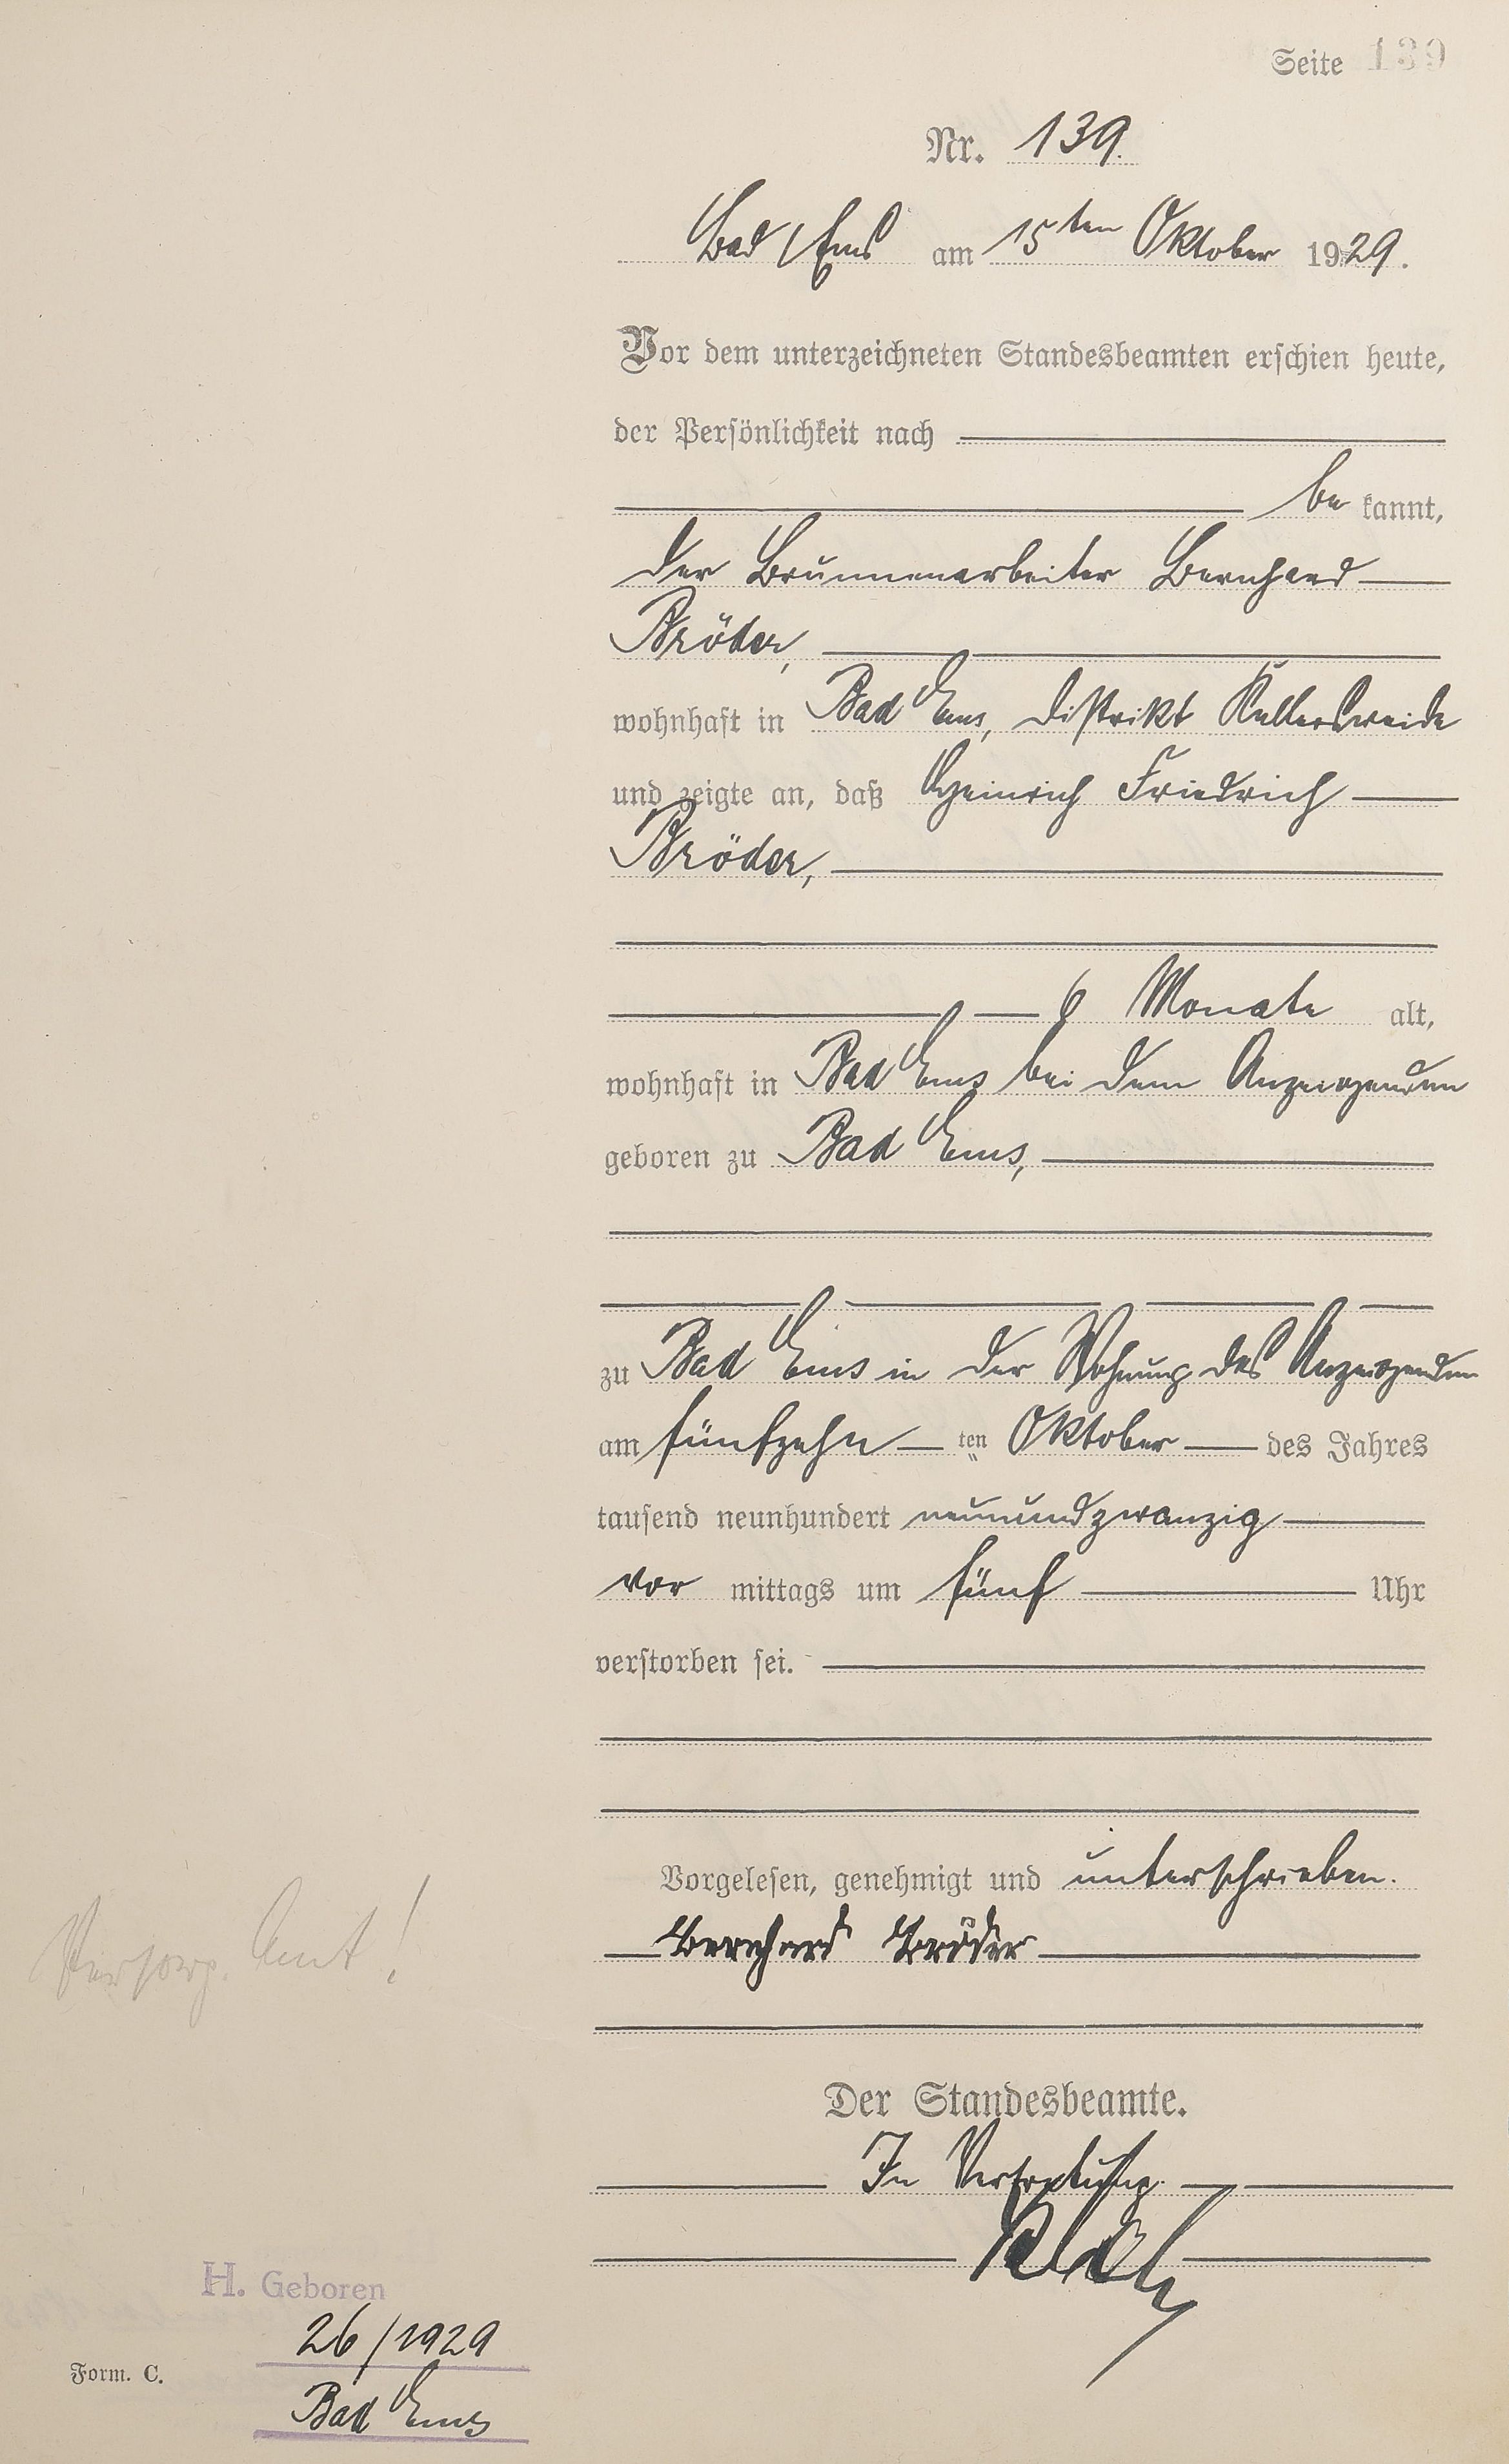 Seite 139
Nr. 139.
Bad Ems am 15ten Oktober 1929.
Vor dem unterzeichneten Standesbeamten erschien heute,
der Persönlichkeit nach
be kannt,
der Brunnenarbeiter Bernhard
Bröder,
wohnhaft in Bad Ems, Distrikt
und zeigte an, daß Heinrich Friedrich
Bröder,
6 Monate alt,
wohnhaft in Bad Ems bei dem Anzeigenden
geboren zu Bad Ems,
zu Bad Ems in der Wohnung des Anzeigenden
am fünfzehn ten Oktober des Jahres
tausend neunhundert neunundzwanzig
vor mittags um fünf Uhr
verstorben sei.
Vorgelesen, genehmigt und unterschrieben.
Bernhard Bröder
Versorg. Amt!
Der Standesbeamte.
In Vertretung.
H. Geboren
26/1929
Form. C.
Bad Ems